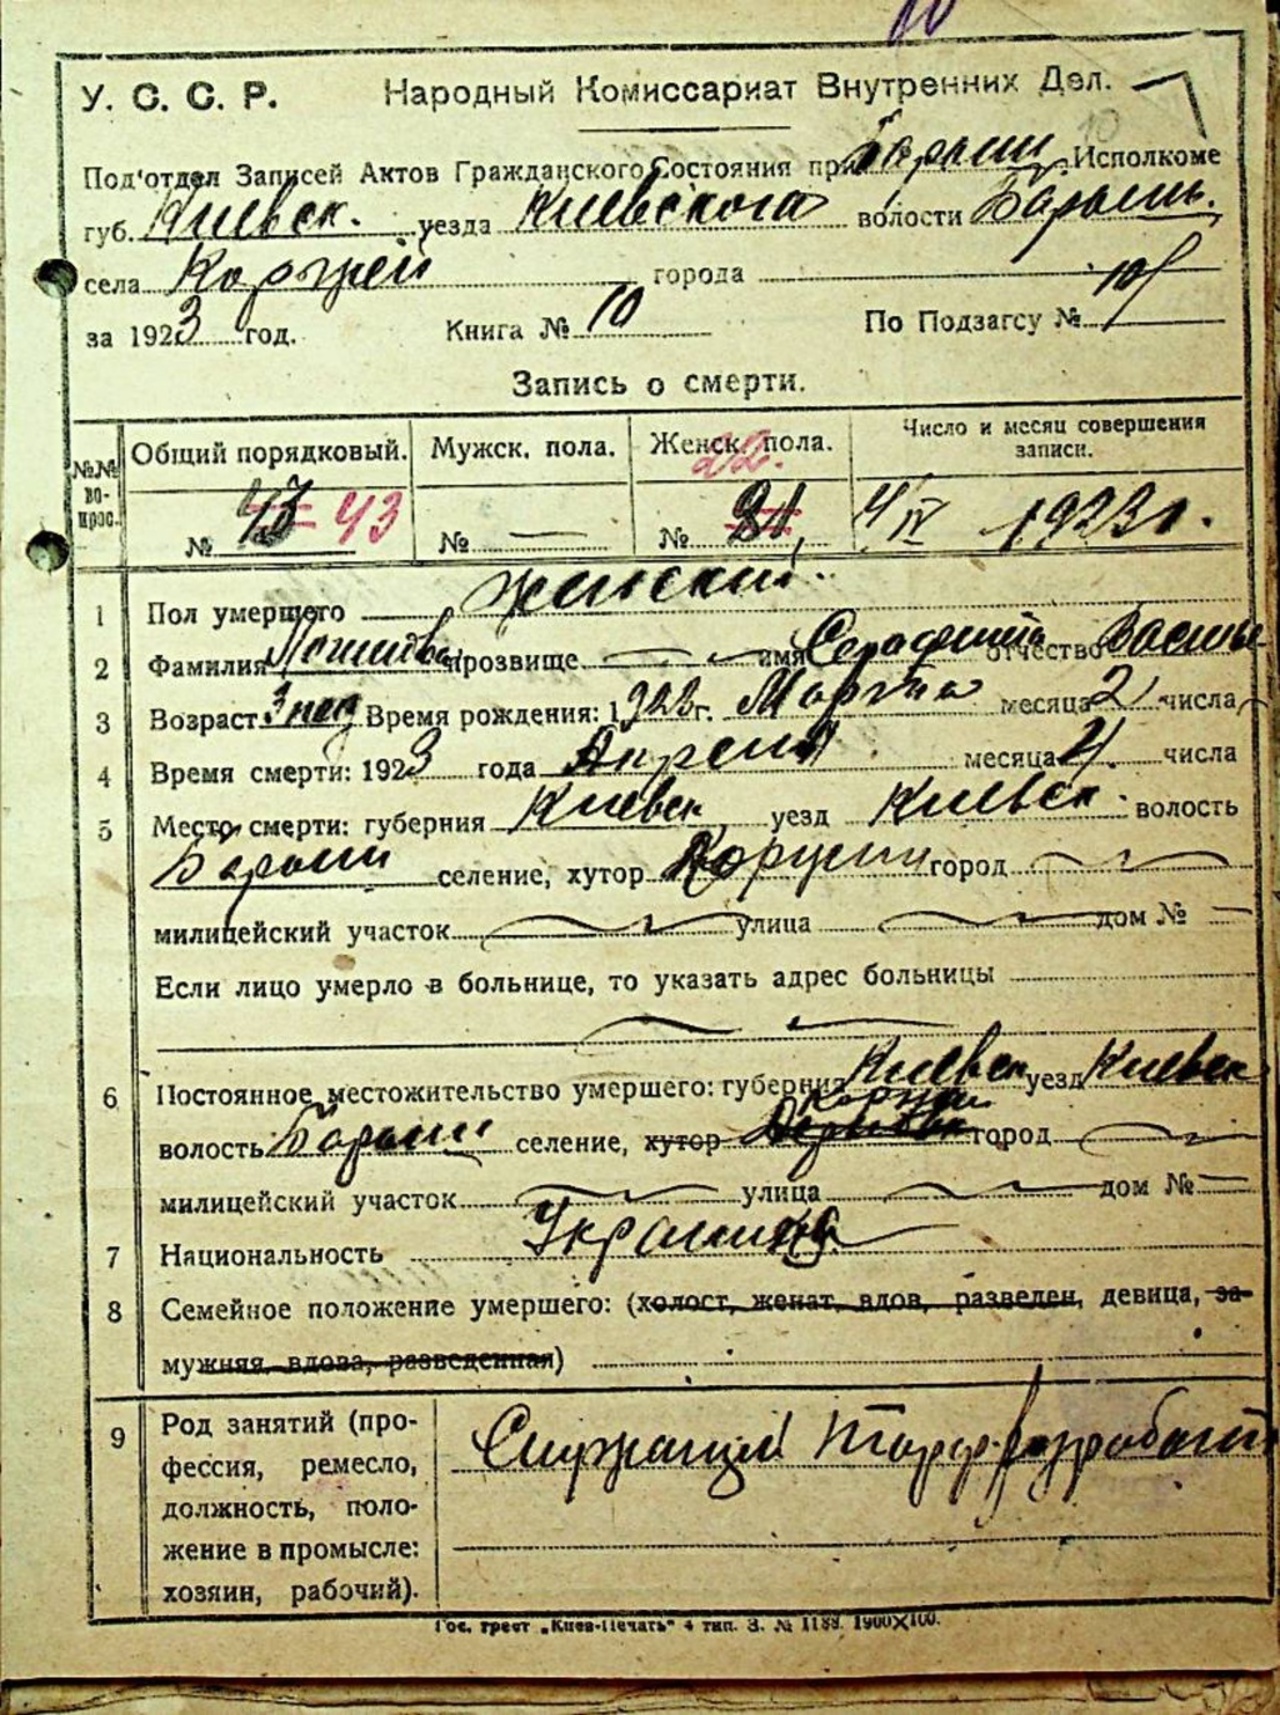 У. С. С. Р. Народный Комиссариат Внутренних Дел.
10
Под'отдел Записей Актов Гражданского Состояния при Барыш. Исполкоме
губ. Киевск. уезда Киевского волости Барыш.
села города
за 1923 год. Книга № 10 По Подзагсу №
Запись о смерти.
№№ вопрос. Общий порядковый. Мужск. пола. Женск. пола. Число и месяц совершения записи.
22.
№ 43 43 № — № 4/IV 1923 г.
1 Пол умершего женский.
2 Фамилия прозвище — имя Серафима отчество Василье
3 Возраст 3 нед Время рождения: 192 г. Марта месяца 2 числа
4 Время смерти: 1923 года Апреля месяца 4. числа
5 Место смерти: губерния Киевск уезд Киевск. волость
Барыш селение, хутор город —
милицейский участок — улица — дом № —
Если лицо умерло в больнице, то указать адрес больницы
6 Постоянное местожительство умершего: губерния Киевск уезд Киевск
волость Барыш селение, хутор город —
милицейский участок — улица — дом № —
7 Национальность
8 Семейное положение умершего: (холост, женат, вдов, разведен, девица, за-
мужняя, вдова, разведенная)
9 Род занятий (про-
фессия, ремесло,
должность, поло-
жение в промысле:
хозяин, рабочий).
Гос. трест „Киев-Печать" 4 тип. З. № 1188. 1900×100.